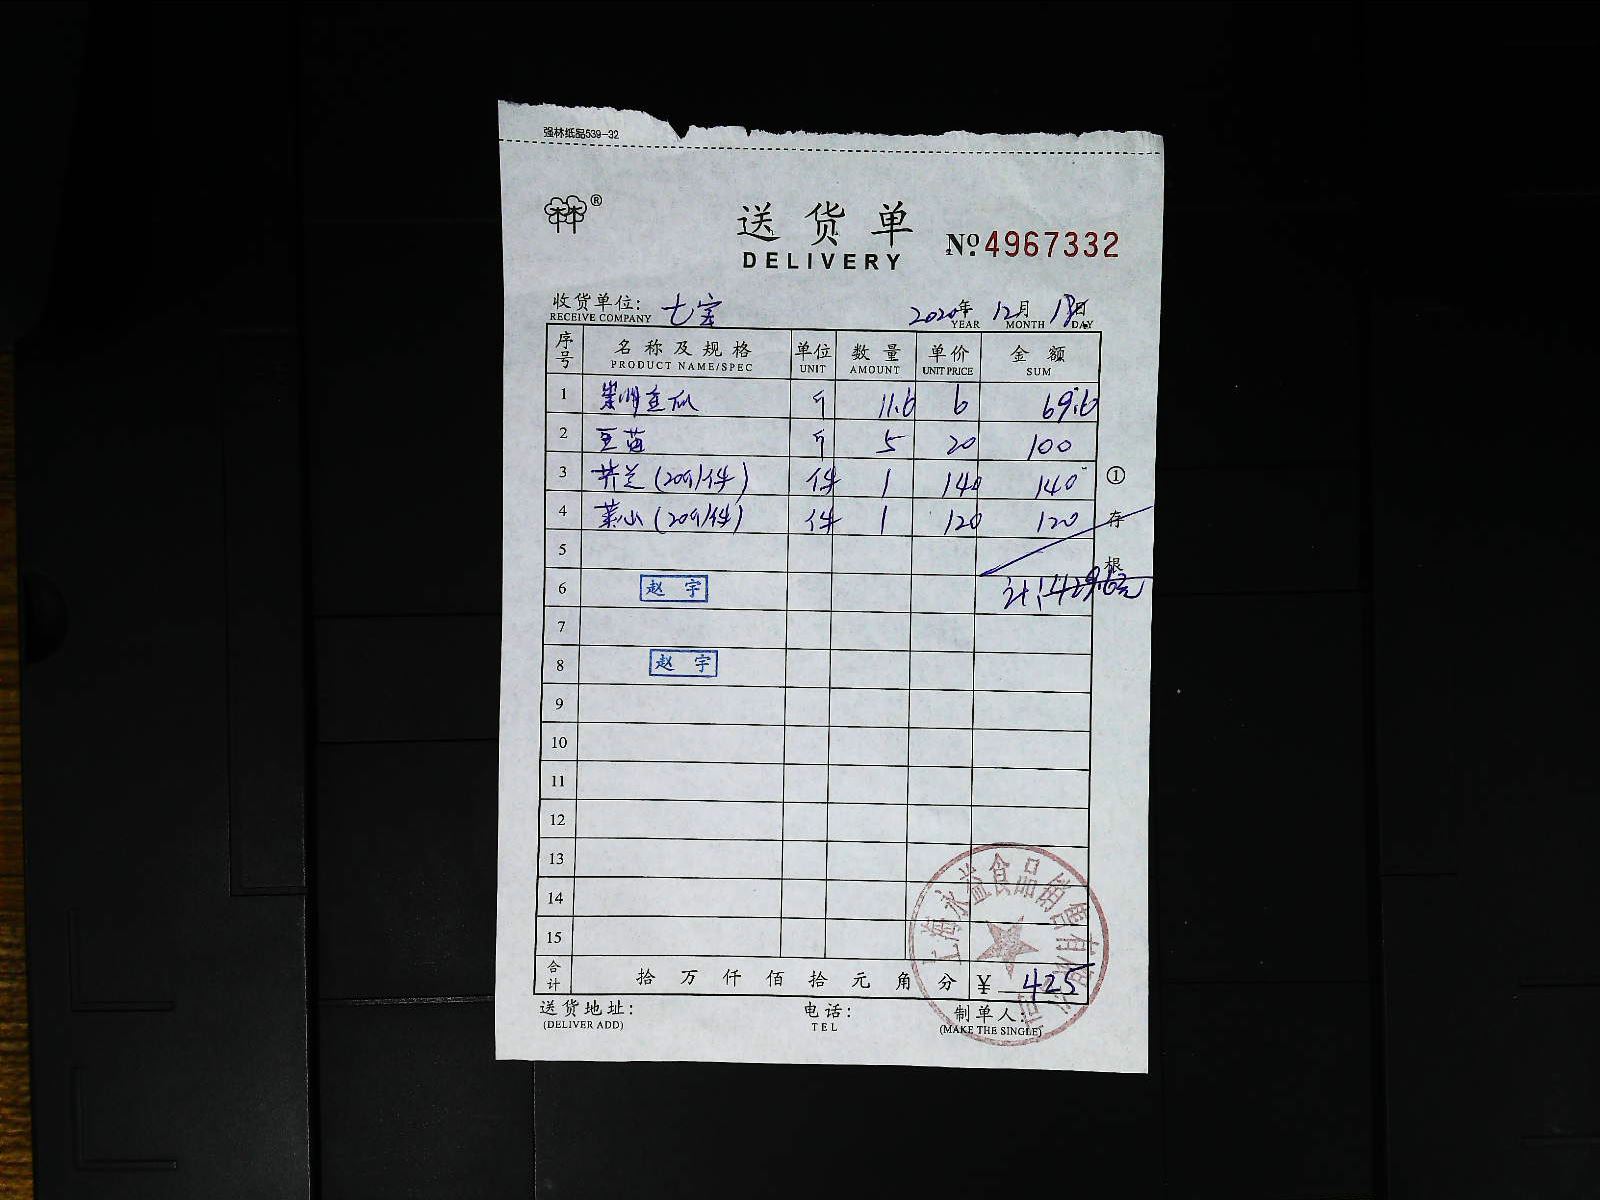 强林纸品539-32
林®
送货单
DELIVERY
No. 4967332
收货单位: 七宝
RECEIVE COMPANY
2020年 12月 日
YEAR MONTH DAY
序号 名称及规格 单位 数量 单价 金额
PRODUCT NAME/SPEC UNIT AMOUNT UNIT PRICE SUM
1 崇明 瓜 斤 11.6 6 69.6
2 豆苗 斤 5 20 100
3 芥兰(20斤/件) 件 1 140 140
4 菜心(20斤/件) 件 1 120 120
① 存根
5
6 赵宇 计:429.6元
7
8 赵宇
9
10
11
12
13
14
15
合计 拾万仟佰拾元角分 ¥ 425
上海永益食品销售有限公司
送货地址: 电话: 制单人:
(DELIVER ADD) TEL (MAKE THE SINGLE)